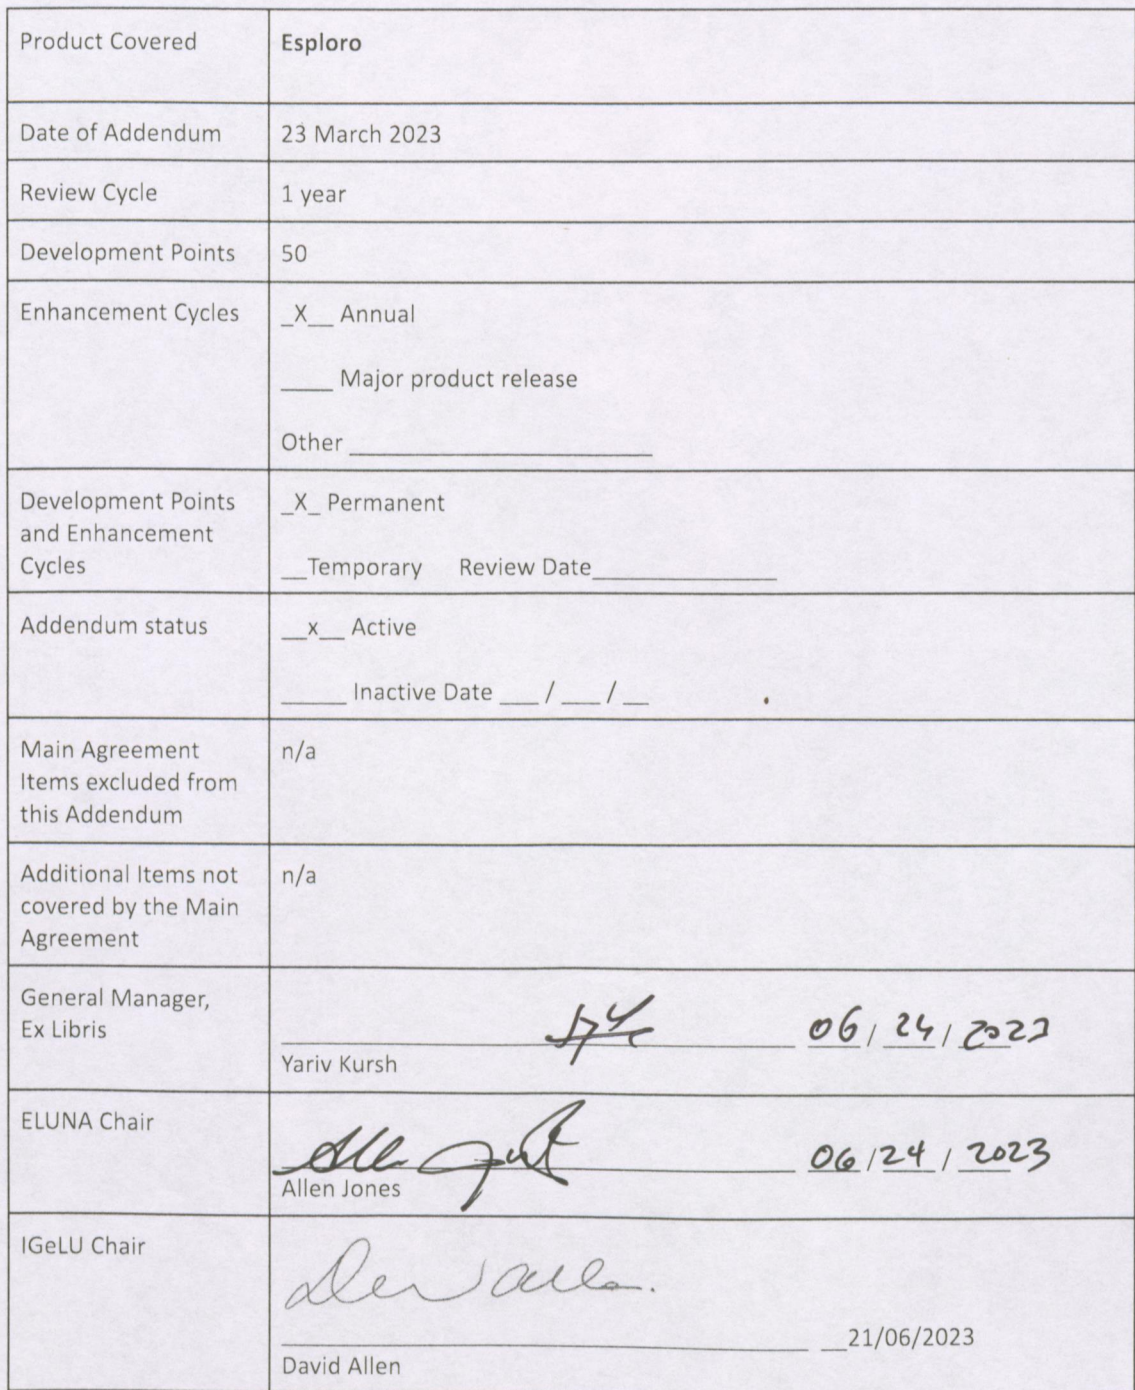 Product Covered
Esploro
Date of Addendum
23 March 2023
Review Cycle
1 year
Development Points
50
Enhancement Cycles
_X__ Annual
____ Major product release
Other _______________________
Development Points
and Enhancement
Cycles
_X_ Permanent
__Temporary Review Date______________
Addendum status
__x__ Active
_____ Inactive Date ___ / ___ / __
Main Agreement
Items excluded from
this Addendum
n/a
Additional Items not
covered by the Main
Agreement
n/a
General Manager,
Ex Libris
06 / 24 / 2023
Yariv Kursh
ELUNA Chair
06 / 24 / 2023
Allen Jones
IGeLU Chair
__21/06/2023
David Allen